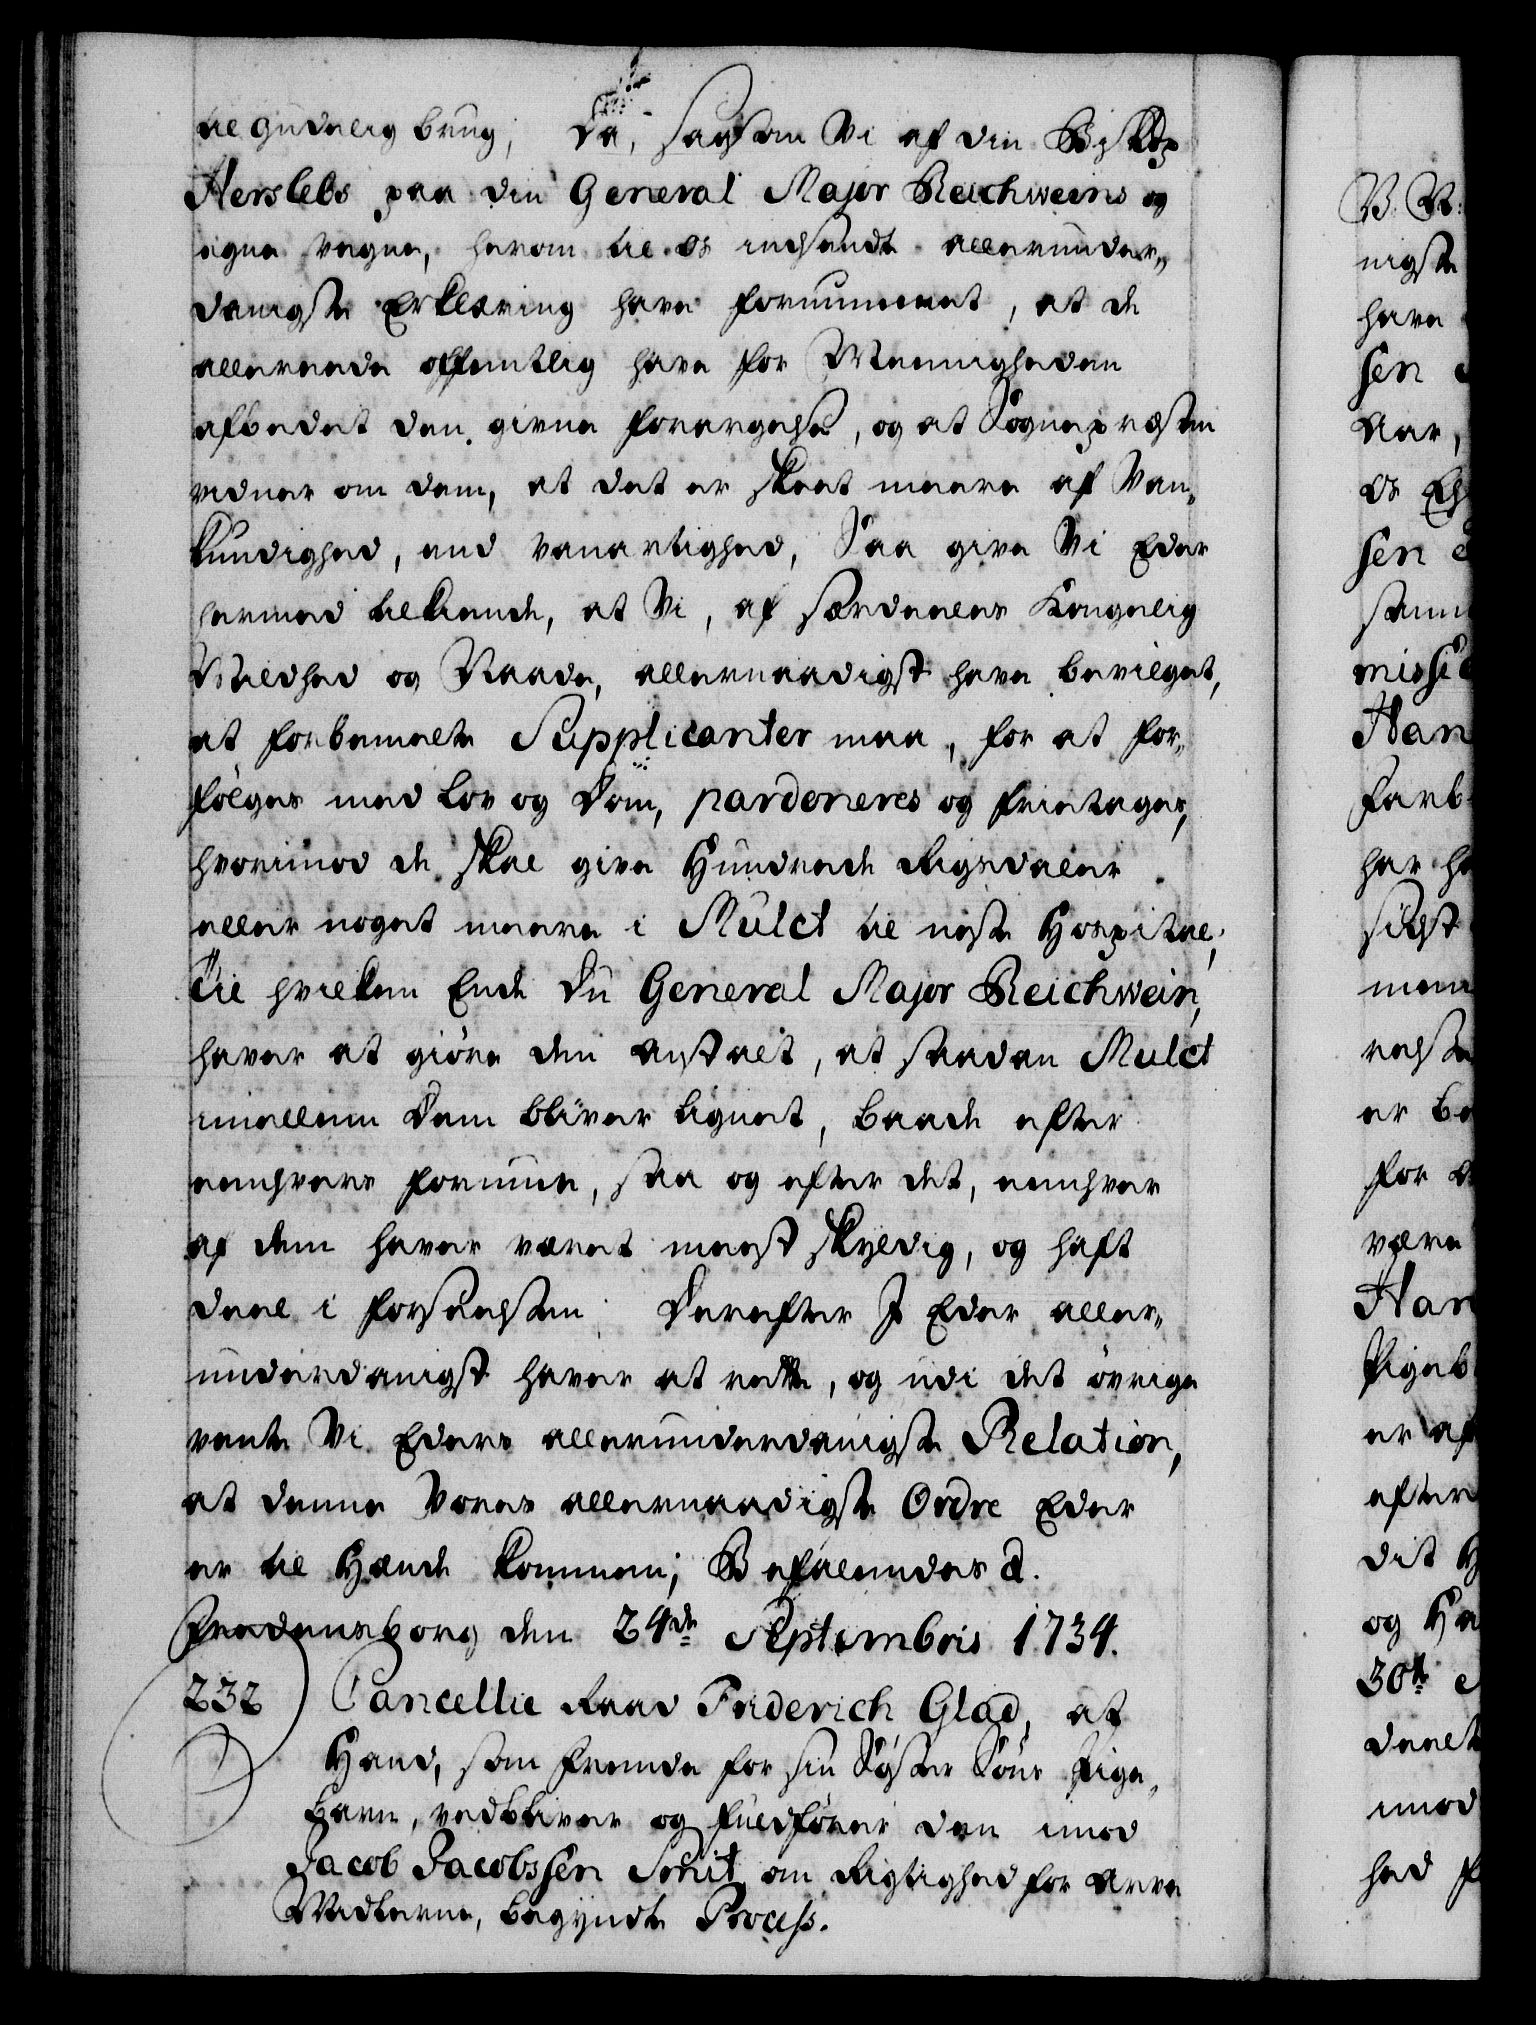 til Gudelig brug; Da, saasom Vi af din Biskop
Herslebs paa din General Major Reichweins og
egne vegne, herom til os indsendte allerunder„
danigste Erklæring have fornummet, at de
allereede offentlig have for Meenigheden
afbedet den givne forargelse, og at Sognepræsten
vidner om dem, at det er skeet meere af Van„
kundighed, end vanartighed, Saa give Vi Eder
hermed tilkiende, at Vi, af særdeeles Kongelig
Mildhed og Naade, allernaadigst have bevilget,
at forbemelte Supplicanter maa, for at for„
følges med Lov og Dom, pardoneres og fritages,
hvorimod de skal give Hundrede Rigsdaler
eller noget meere i Mulct til neste Hospital;
Til hvilken Ende Du General Major Reichwein,
haver at giøre den anstalt, at saadan Mulct
imellem Dem bliver lignet, baade efter
eenhvers formue, saa og efter det, eenhver
af dem haver været meest skyldig, og haft
deel i forseelsen. Derefter I Eder aller„
underdanigst haver at rette, og udi det øvrige
vente Vi Eders allerunderdanigste Relation,
at denne Vores allernaadigste Ordre Eder
er til Hænde kommen; Befalendes d.
Fredensborg den 24de Septembris 1734.
232 Cancellie Raad Friderich Glad, at
Hand, som Frænde for sin Søster Søns Pige„
børn, vedbliver og fuldfører den imod
Jacob Jacobssen Smit om Rigtighed for Arve
Midlerne, begyndte Process.
V: R:
nigste
have
sen
Aar,
os
sen
samme
misse
Han
Farb
har ha
sidst
men
velse
er be
for
være
Han
Pigeb
er af
efter
dit H
og Ha
30te
deel
imod
hed f